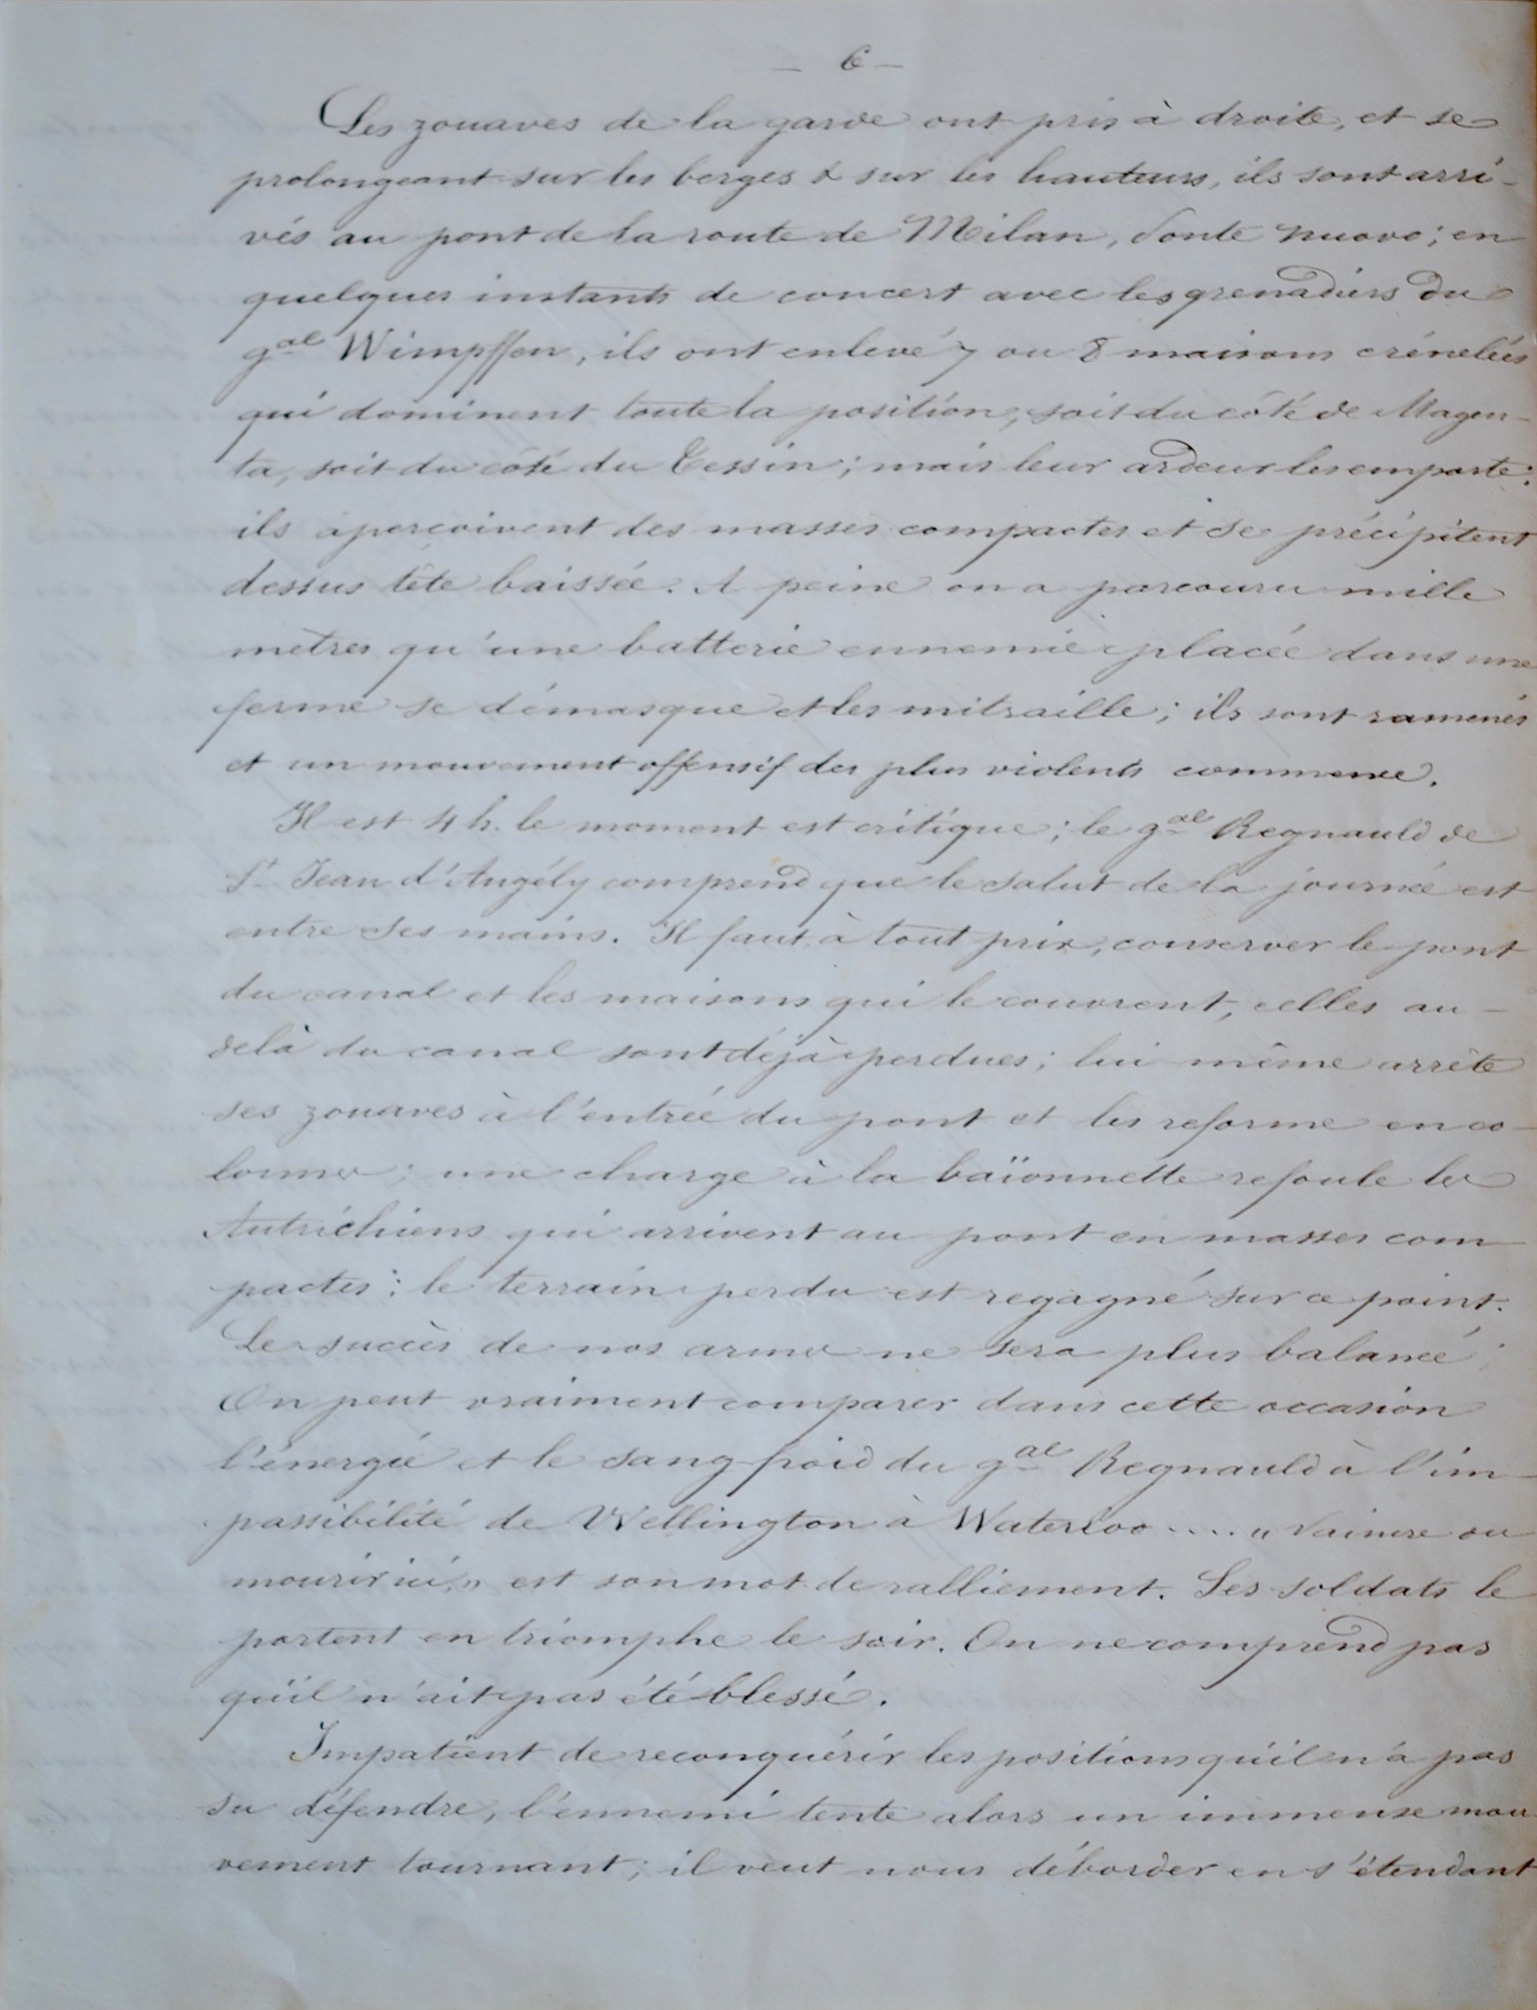 — 6 —
Les zouaves de la garde ont pris à droite, et se
prolongeant sur les berges & sur les hauteurs, ils sont arri-
vés au pont de la route de Milan, Ponte nuovo; en
quelques instants de concert avec les grenadiers du
gal Wimpffen, ils ont enlevé 7 ou 8 maisons crénelées
qui dominent toute la position, soit du côté de Magen-
ta, soit du côté du Tessin; mais leur ardeur les emporte:
ils aperçoivent des masses compactes et se précipitent
dessus tête baissée. A peine on a parcouru mille
mètres qu'une batterie ennemie placée dans une
ferme se démasque et les mitraille; ils sont ramenés
et un mouvement offensif des plus violents commence.
Il est 4 h. le moment est critique; le gal Regnauld de
St Jean d'Angély comprend que le salut de la journée est
entre ses mains. Il faut, à tout prix, conserver le pont
du canal et les maisons qui le couvrent, celles au-
delà du canal sont déjà perdues; lui même arrête
ses zouaves à l'entrée du pont et les reforme en co-
lonnes; une charge à la baïonnette refoule les
Autrichiens qui arrivent au pont en masses com-
pactes: le terrain perdu est regagné sur ce point.
Le succès de nos armes ne sera plus balancé:
On peut vraiment comparer dans cette occasion
l'énergie et le sang froid du gal Regnauld à l'im-
passibilité de Wellington à Waterloo ..... „ Vaincre ou
mourir ici, „ est son mot de ralliement. Ses soldats le
portent en triomphe le soir. On ne comprend pas
qu'il n'ait pas été blessé.
Impatient de reconquérir les positions qu'il n'a pas
su défendre, l'ennemi tente alors un immense mou-
vement tournant; il veut nous déborder en s'étendant